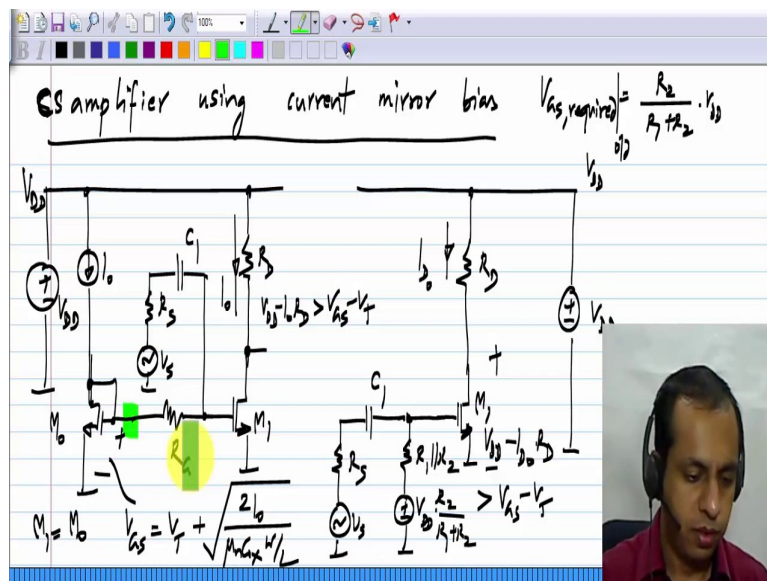 100%
B I
CS amplifier using current mirror bias
V_GS,required|opp = R2/(R1+R2) · VDD
VDD
VDD
VDD
I0
C1
RS
VS
I0
RD
VDD-I0RD > VGS-VT
M0
+
-
RG
M1
M1 = M0
VGS = VT + √(2I0/(μnCox W/L))
ID0
RD
VDD
+
C1
RS
VS
R1||R2
VDD·R2/(R1+R2)
M1
VDD - ID0·RD
> VGS-VT